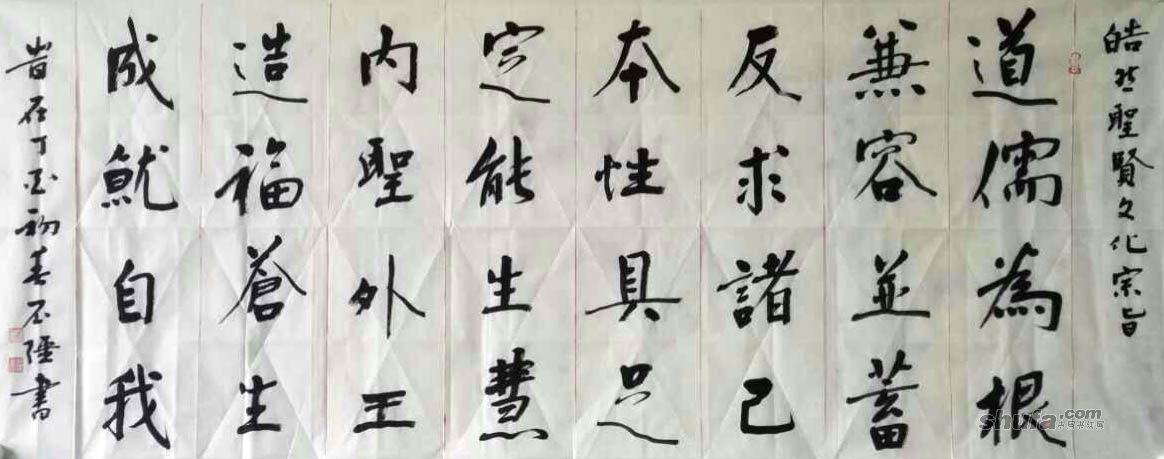 皓然聖賢文化宗旨
道儒為根
兼容並蓄
反求諸己
本性具足
定能生慧
内聖外王
造福蒼生
成就自我
岩在丁酉初春石陲書
shufa.com